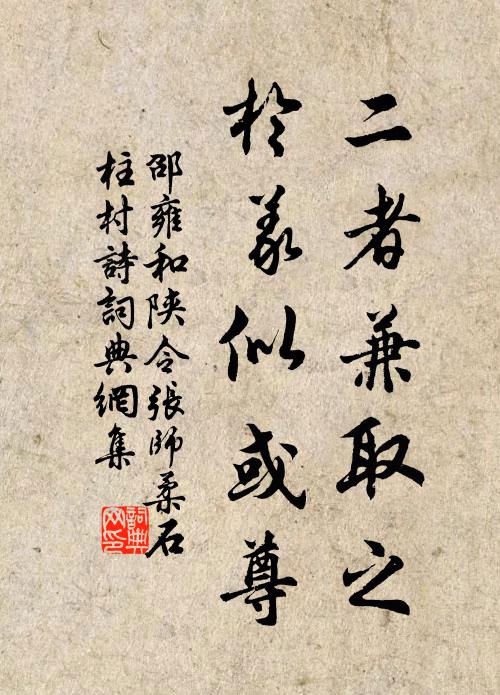 二者兼取之
於義似或尊
邵雍和陝令張師柔石
柱村詩詞典網集
詞典
网印